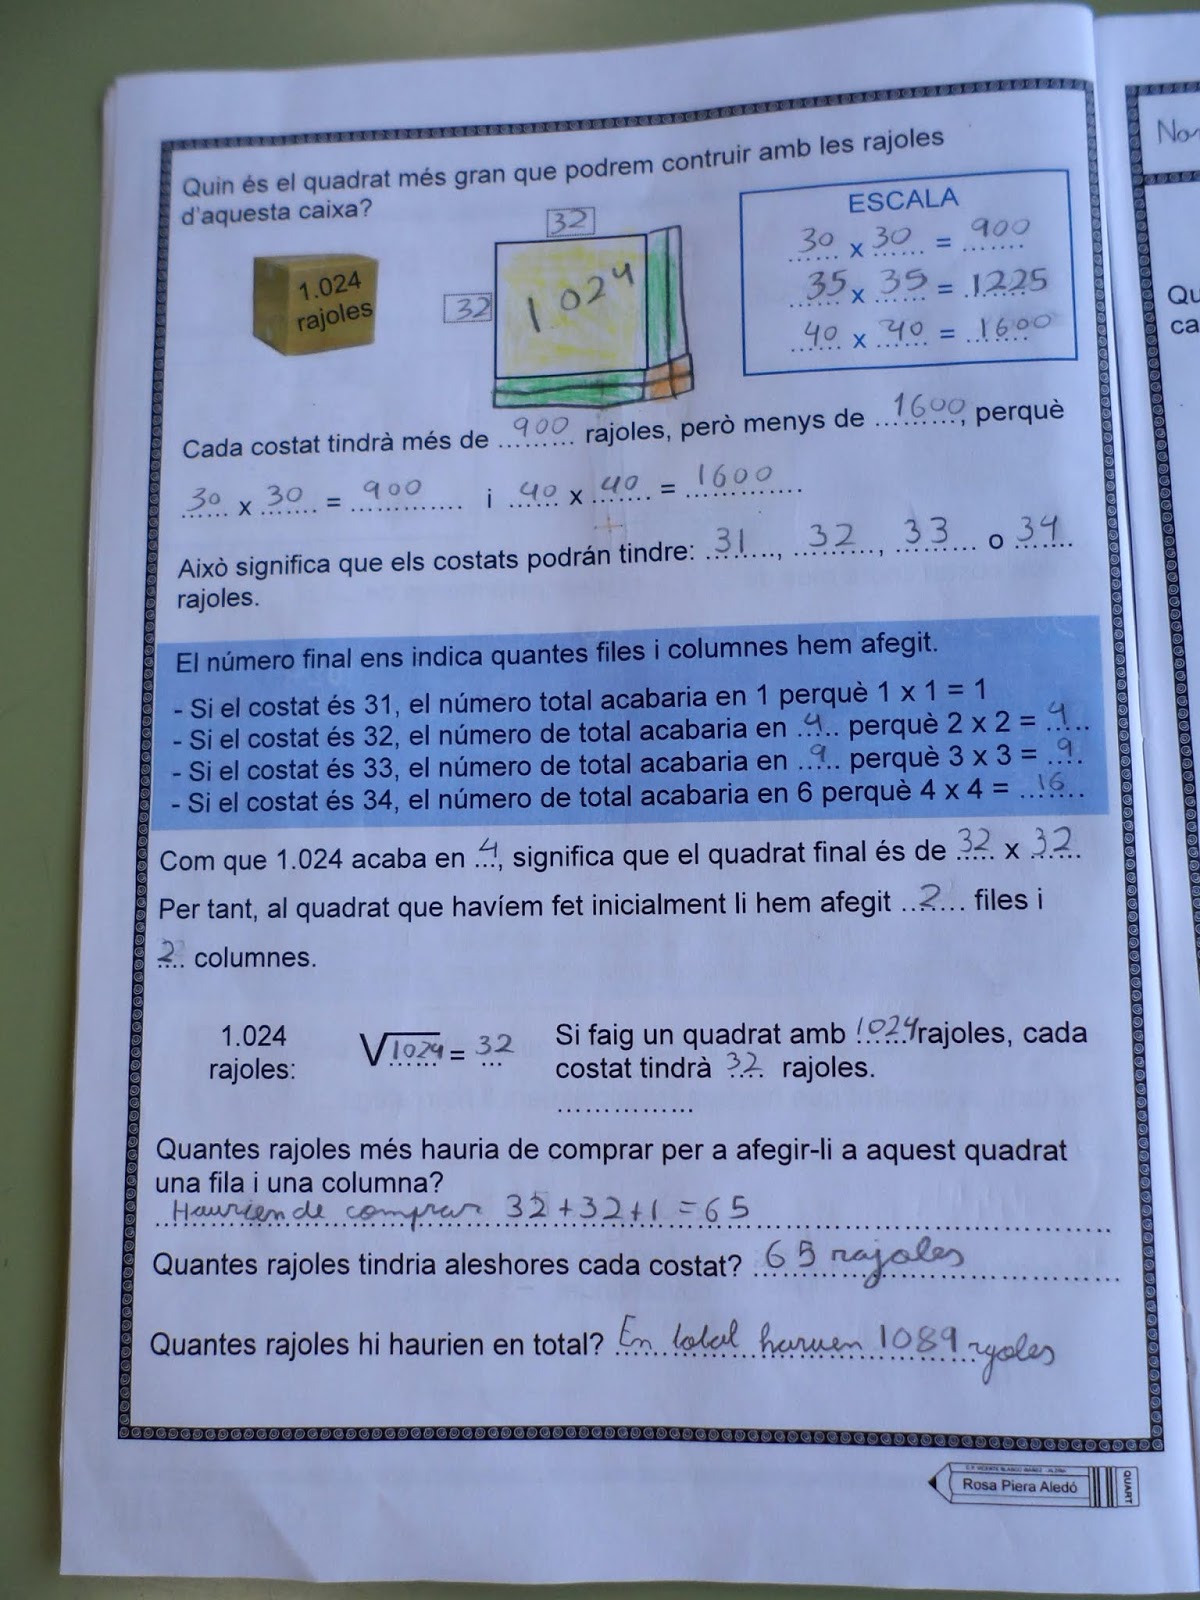 Quin és el quadrat més gran que podrem contruir amb les rajoles
d'aquesta caixa?
1.024
rajoles
32
32
1.024
ESCALA
30 x 30 = 900
35 x 35 = 1225
40 x 40 = 1600
Cada costat tindrà més de 900 rajoles, però menys de 1600, perquè
30 x 30 = 900 i 40 x 40 = 1600
Això significa que els costats podrán tindre: 31, 32, 33 o 34
rajoles.
El número final ens indica quantes files i columnes hem afegit.
- Si el costat és 31, el número total acabaria en 1 perquè 1 x 1 = 1
- Si el costat és 32, el número de total acabaria en 4 perquè 2 x 2 = 4
- Si el costat és 33, el número de total acabaria en 9 perquè 3 x 3 = 9
- Si el costat és 34, el número de total acabaria en 6 perquè 4 x 4 = 16
Com que 1.024 acaba en 4, significa que el quadrat final és de 32 x 32
Per tant, al quadrat que havíem fet inicialment li hem afegit 2 files i
2 columnes.
1.024
rajoles:
√1024 = 32
Si faig un quadrat amb 1024 rajoles, cada
costat tindrà 32 rajoles.
Quantes rajoles més hauria de comprar per a afegir-li a aquest quadrat
una fila i una columna?
Haurien de comprar 32+32+1 = 65
Quantes rajoles tindria aleshores cada costat? 65 rajoles
Quantes rajoles hi haurien en total? En total 1089 rajoles
Rosa Piera Aledó
QUART
Nom
Qu
ca